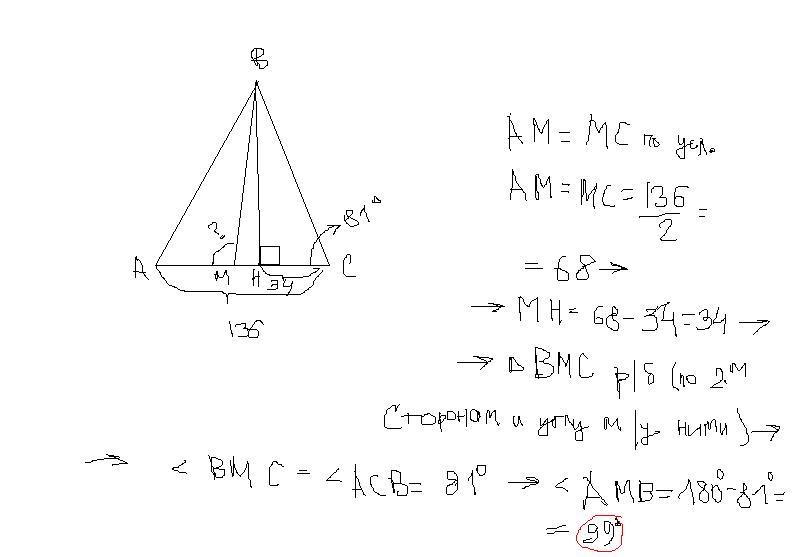 B
AM = MC по усл.
AM = MC = 136/2 =
= 68 →
81°
?
A M H 34 C
136
→ MH = 68 - 34 = 34 →
→ △ BMC р/б (по 2м
сторонам и углу м/у ними) →
→ < BMC = < ACB = 81° → < AMB = 180° - 81° =
= 99°